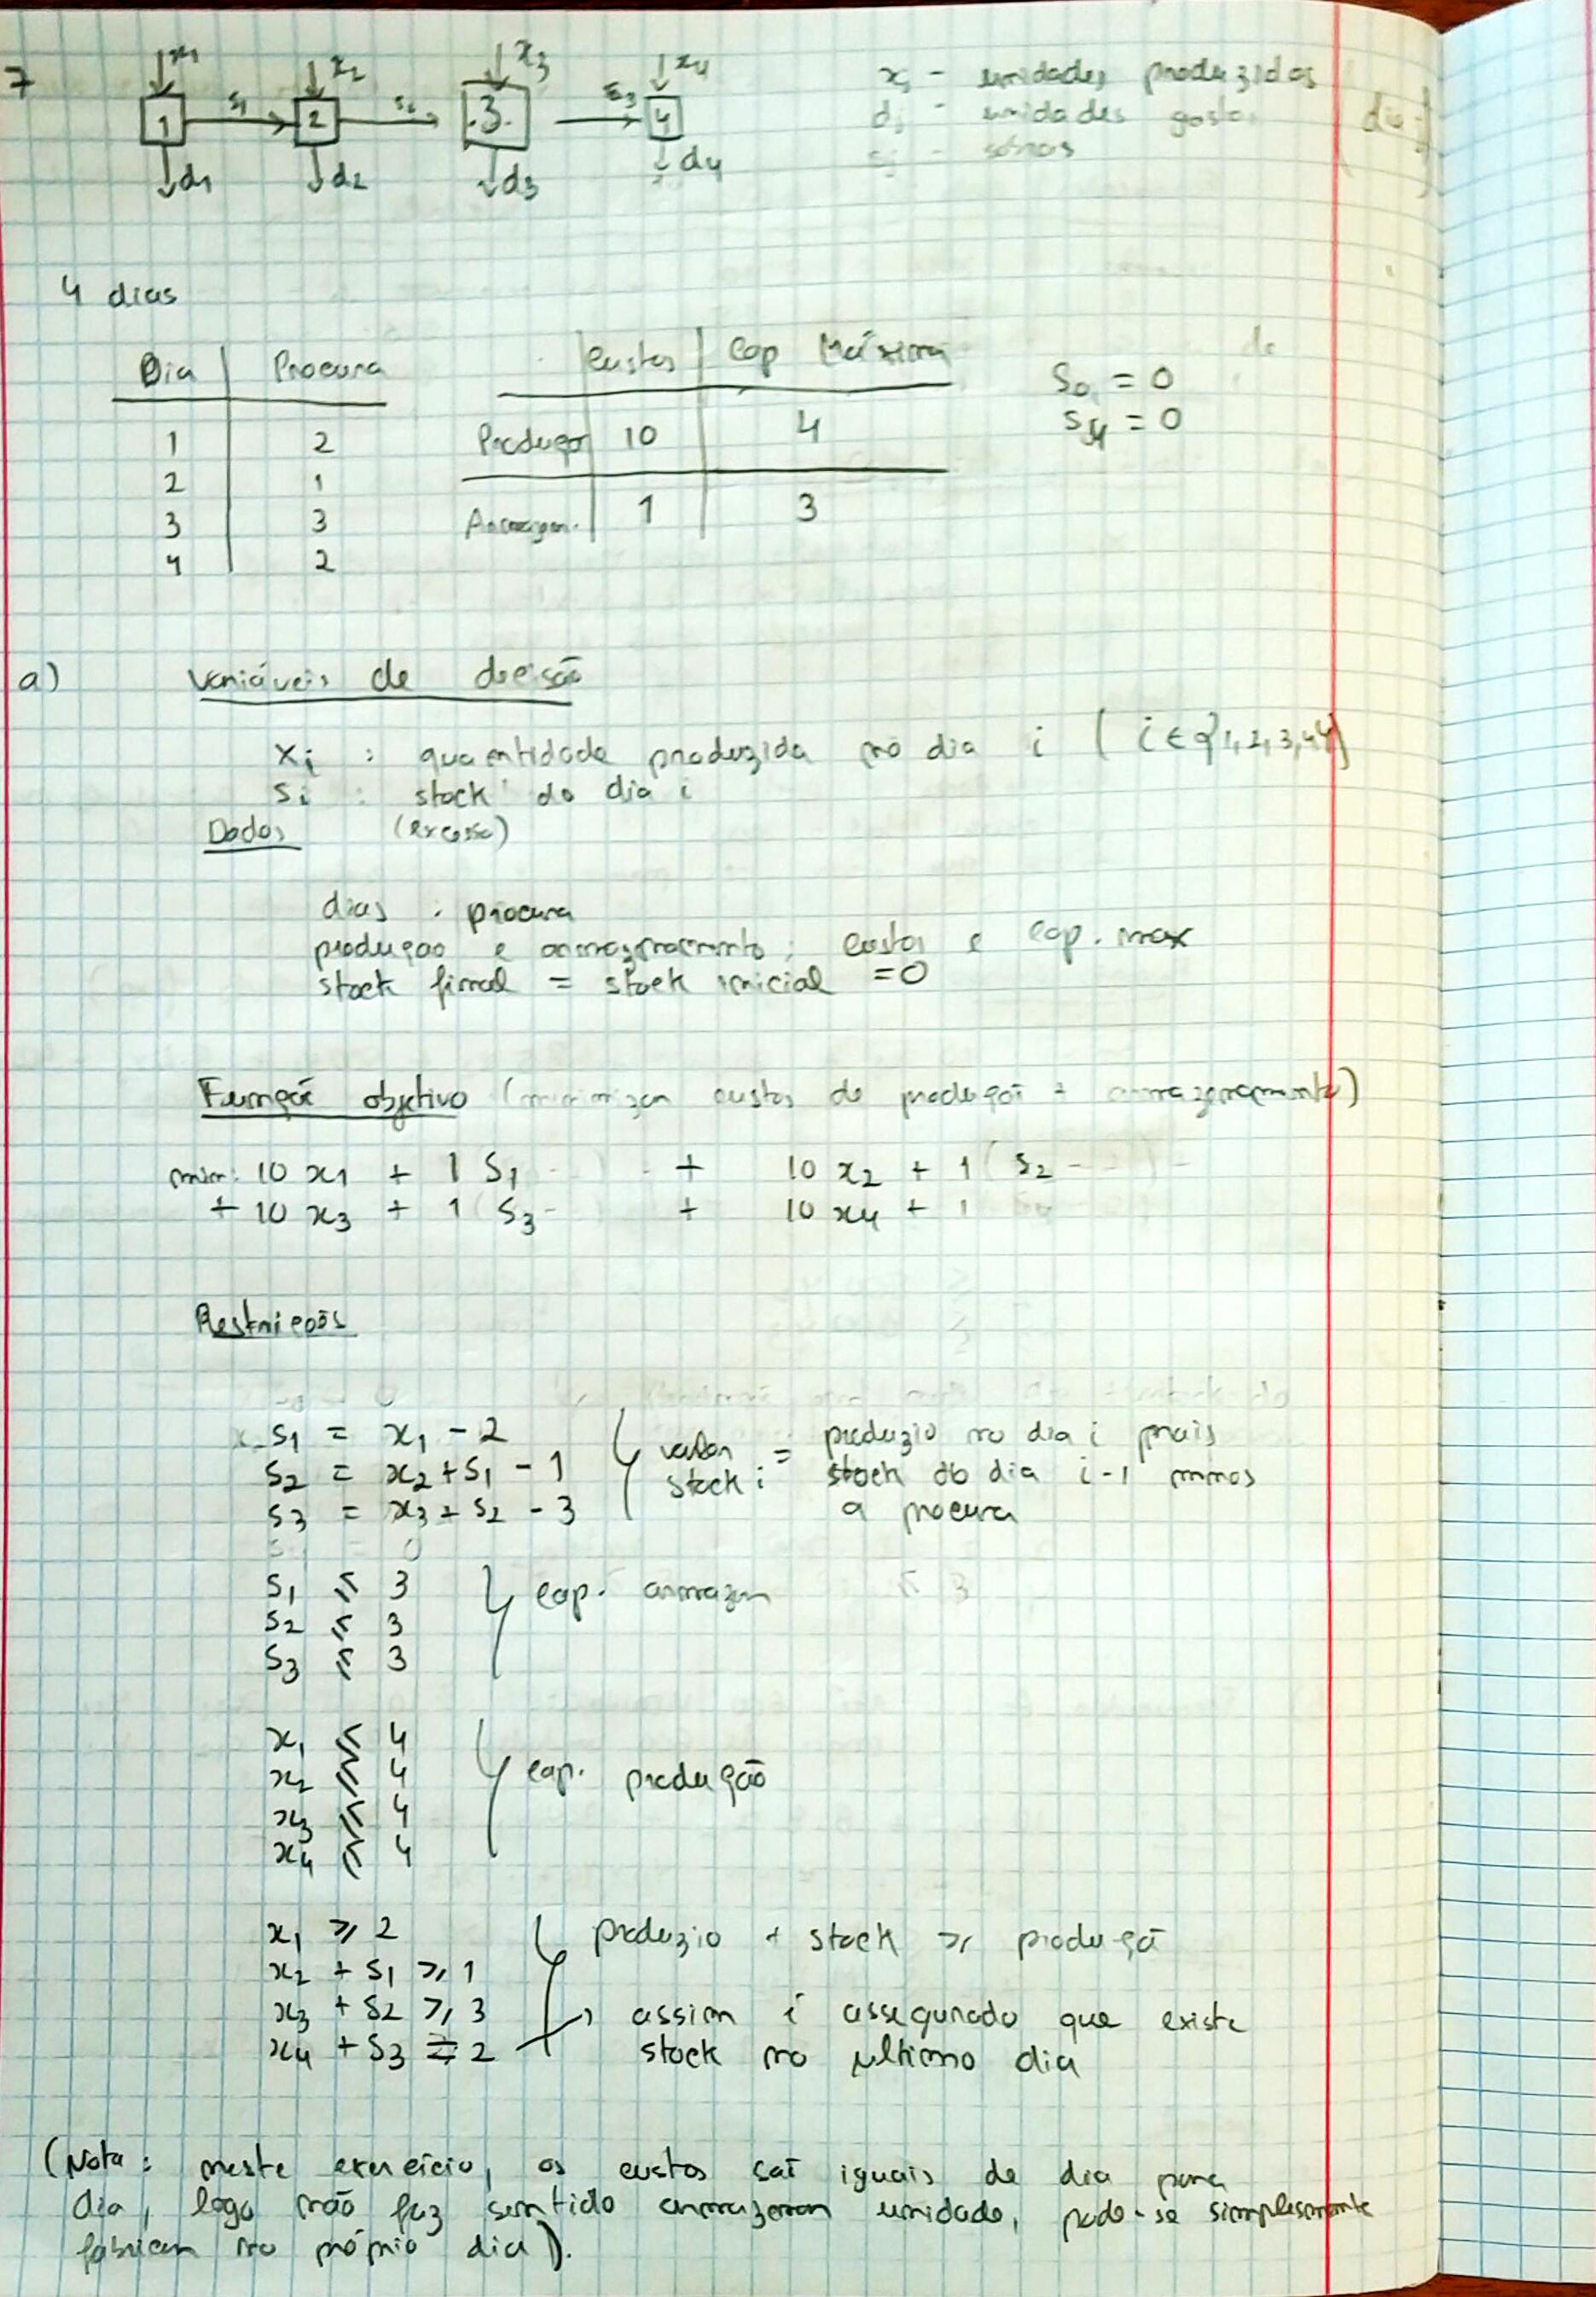 7
x1 x2 x3 x4
1 s1 2 s2 .3. s3 4
d1 d2 d3 d4
xj - unidades produzidas
dj - unidades gastas
sj - sobras
dia j
4 dias
Dia | Procura
1 | 2
2 | 1
3 | 3
4 | 2
Custos | Cap Máxima
Produção | 10 | 4
Armazen. | 1 | 3
S0 = 0
S4 = 0
a) Variáveis de decisão
xi : quantidade produzida no dia i ( i ∈ {1,2,3,4})
si : stock do dia i
(excesso)
Dados
dias : procura
produção e armazenamento : custos e cap. max
stock final = stock inicial = 0
Função objetivo (minimizar custos de produção + armazenamento)
min: 10 x1 + 1 S1 + 10 x2 + 1 ( S2
+ 10 x3 + 1 ( S3 + 10 x4 + 1
Restrições
S1 = x1 - 2
S2 = x2 + S1 - 1
S3 = x3 + S2 - 3
valor stock i = produzio no dia i mais
stock do dia i-1 menos
a procura
S1 ≤ 3
S2 ≤ 3
S3 ≤ 3
cap. armazem
x1 ≤ 4
x2 ≤ 4
x3 ≤ 4
x4 ≤ 4
cap. produção
x1 ≥ 2
x2 + S1 ≥ 1
x3 + S2 ≥ 3
x4 + S3 = 2
produzio + stock ≥ produçã
assim é assegurado que existe
stock no ultimo dia
(Nota: neste exercício, os custos saî iguais de dia para
dia, logo não faz sentido armazenar unidade, pode-se simplesmente
fabricar no próprio dia).